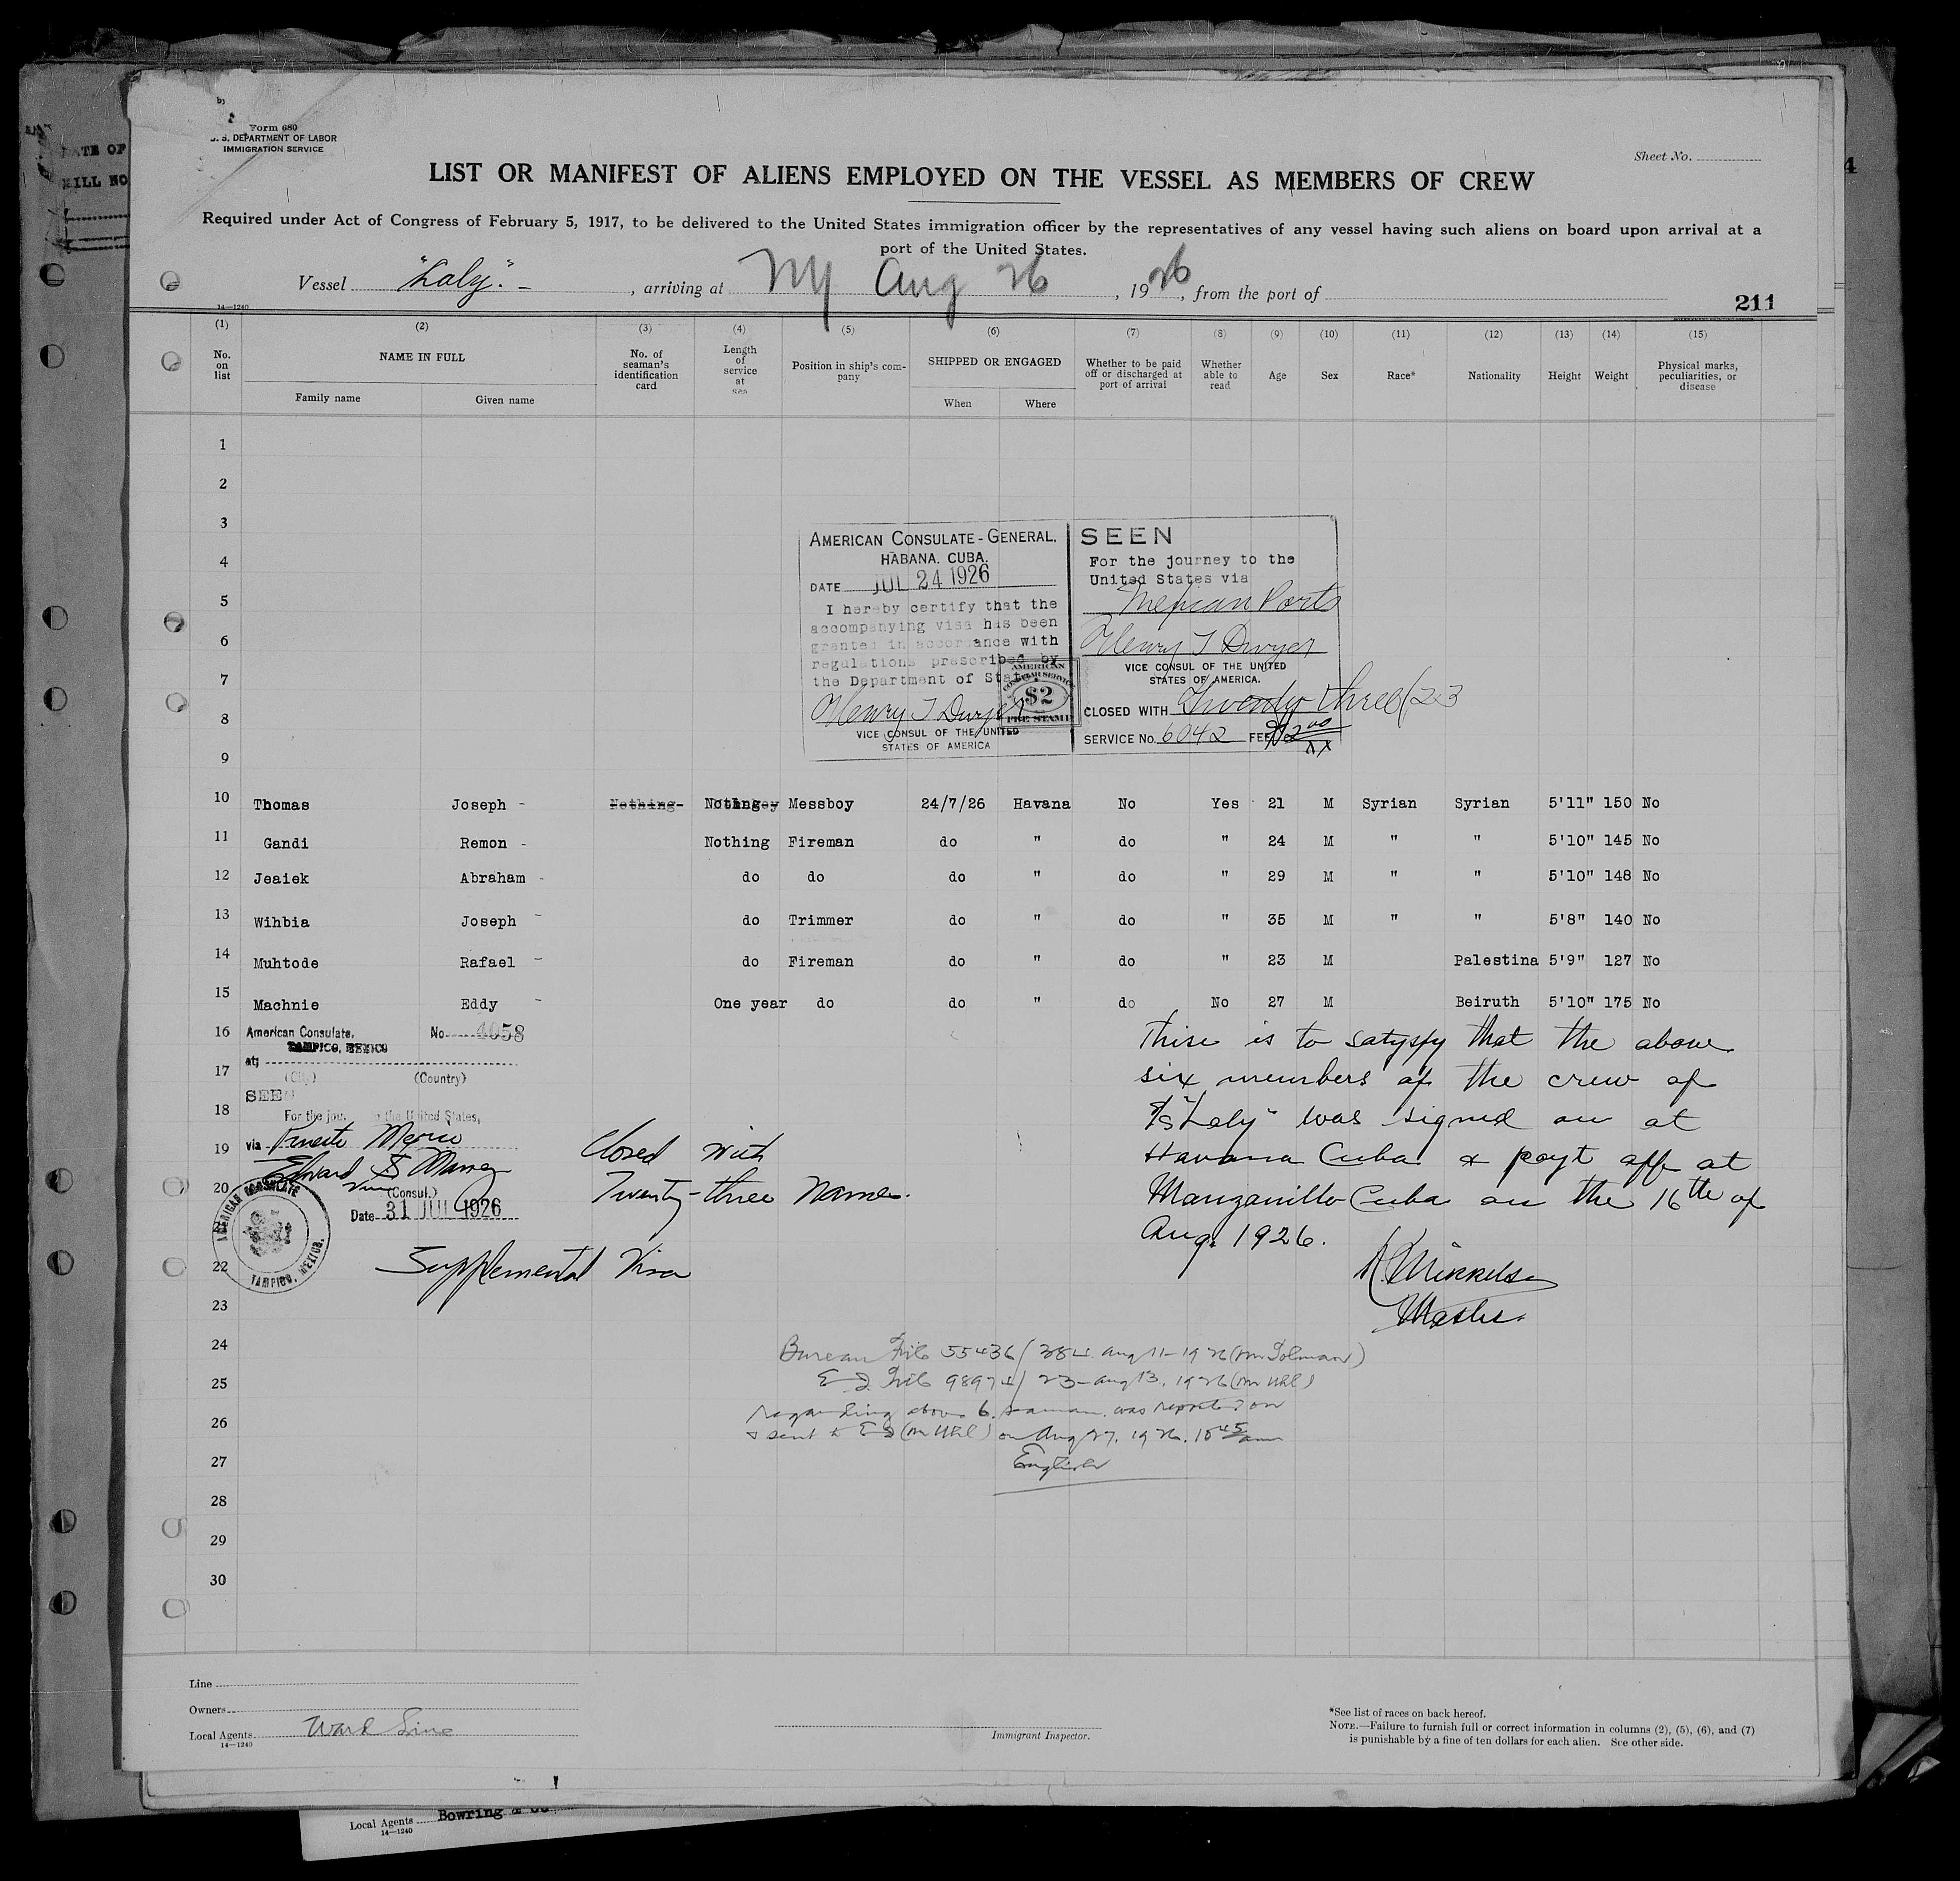 Form 680
U. S. DEPARTMENT OF LABOR
IMMIGRATION SERVICE
Sheet No.
LIST OR MANIFEST OF ALIENS EMPLOYED ON THE VESSEL AS MEMBERS OF CREW
Required under Act of Congress of February 5, 1917, to be delivered to the United States immigration officer by the representatives of any vessel having such aliens on board upon arrival at a
port of the United States.
Vessel "Laly". - , arriving at NY Aug 26 , 1926, from the port of
14—1240
211
(1) (2) (3) (4) (5) (6) (7) (8) (9) (10) (11) (12) (13) (14) (15)
No. on list
NAME IN FULL
Family name
Given name
No. of seaman's identification card
Length of service at sea
Position in ship's company
SHIPPED OR ENGAGED
When
Where
Whether to be paid off or discharged at port of arrival
Whether able to read
Age
Sex
Race*
Nationality
Height
Weight
Physical marks, peculiarities, or disease
1
2
3
4
5
6
7
8
9
AMERICAN CONSULATE-GENERAL.
HABANA. CUBA.
DATE JUL 24 1926
I hereby certify that the
accompanying visa has been
granted in accordance with
regulations prescribed by
the Department of State
Henry T Dwyer
VICE CONSUL OF THE UNITED
STATES OF AMERICA
AMERICAN
CONSULAR SERVICE
$2
FEE STAMP
SEEN
For the journey to the
United States via
Mexican Ports
Henry T Dwyer
VICE CONSUL OF THE UNITED
STATES OF AMERICA.
CLOSED WITH Twenty three (23
SERVICE No. 6042 FEE $2 00
10 Thomas Joseph - Nothing- Nothing Messboy 24/7/26 Havana No Yes 21 M Syrian Syrian 5'11" 150 No
11 Gandi Remon - Nothing Fireman do " do " 24 M " " 5'10" 145 No
12 Jeaiek Abraham - do do do " do " 29 M " " 5'10" 148 No
13 Wihbia Joseph - do Trimmer do " do " 35 M " " 5'8" 140 No
14 Muhtode Rafael - do Fireman do " do " 23 M Palestina 5'9" 127 No
15 Machnie Eddy - One year do do " do No 27 M Beiruth 5'10" 175 No
16
17
18
19
20
22
23
24
25
26
27
28
29
30
American Consulate,
No. 4058
TAMPICO, MEXICO
at;
(City) (Country)
SEEN
For the jou. o the United States,
via Puerto Mexico
Edward S
Vice (Consul.)
Date 31 JUL 1926
AMERICAN CONSULATE
TAMPICO, MEXICO.
Closed with
Twenty-three names.
Supplemental Visa
Thise is to satysfy that the above
six members of the crew of
"Laly" was signed on at
Havana Cuba & payt off at
Manzanillo Cuba on the 16th of
Aug. 1926.
Mikkelsen
Master.
Bureau File 55436/384 Aug 11-1926 (Mr Tolman)
File 98974/23-Aug 13, 1926 (Mr Uhl)
regarding above 6 seaman was reported on
& sent to (Mr Uhl) on Aug 27, 1926. 10 45 am
English
Line
Owners
Local Agents Ward Line
14—1240
Immigrant Inspector.
*See list of races on back hereof.
NOTE.—Failure to furnish full or correct information in columns (2), (5), (6), and (7)
is punishable by a fine of ten dollars for each alien. See other side.
Local Agents Bowring & Co
14—1240